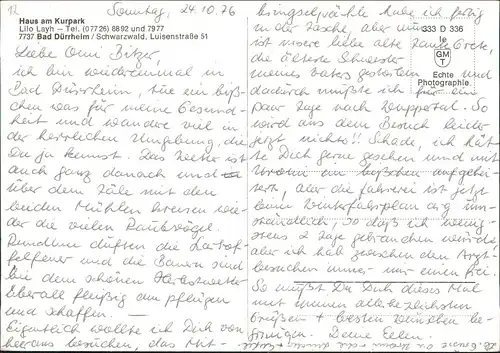 12
Sonntag, 24.10.76
Haus am Kurpark
Lilo Layh – Tel. (07726) 8892 und 7977
7737 Bad Dürrheim / Schwarzwald, Luisenstraße 51
Liebe Omi Bitzer,
ich bin wiedereinmal in
Bad Dürrheim, tue ein biß-
chen was für meine Gesund-
heit und wandre viel in
der herrlichen Umgebung, die
Du ja kennst. Das Wetter ist
auch ganz danach und
über dem Täle mit den
beiden Mühlen kreisen wie-
der die vielen Raubvögel.
Rundum duften die Kartof-
felfeuer und die Bauern sind
bei dem schönen Herbstwetter
überall fleißig am pflügen
und schaffen.
Eigentlich wollte ich Dich von
hieraus besuchen, das Mit-
bringsel hatte habe ich fertig
in der Tasche, aber nun
ist unsere liebe alte Tante Grete,
die älteste Schwester
meines Vaters gestorben und
dadurch mußte ich für ein
paar Tage nach Wuppertal. So
wird aus dem Besuch leider
jetzt nichts!! Schade, ich hät-
te Dich gerne gesehen und mit
ein bißchen aufgehei-
tert, aber die Fahrerei ist jetzt
beim Winterfahrplan arg um-
ständlich, so daß ich wenig-
stens 2 Tage gebrauchen würde
aber ich hab zwischen den Arzt-
besuchen immer nur einen frei.
So mußt Du Dich dieses Mal
mit meinen allerherzlichsten
Grüßen + besten Wünschen be-
gnügen. Deine Ellen.
G33 D 336
le
GM
T
Echte
Photographie